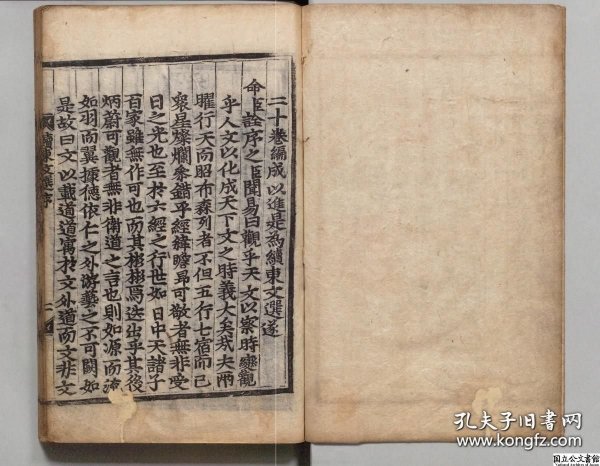 二十卷編成以進是爲續東文選遂
命臣詮序之臣聞易曰觀乎天文以察時變觀
乎人文以化成天下文之時義大矣哉夫兩
曜行天而昭布森列者不但五行七宿而已
衆星燦爛參錯乎經緯瞻昂可敬者無非受
日之光也至於六經之行世如日中天諸子
百家雖無作可也而其彬彬焉迭出乎其後
炳蔚可觀者無非衛道之言也則如源而流
如羽而翼據德依仁之外游藝之不可闕如
是故曰文以載道道寓於文外道而文非文
續東文選序
二
孔夫子旧书网
www.kongfz.com
国立公文書館
National Archives of Japan